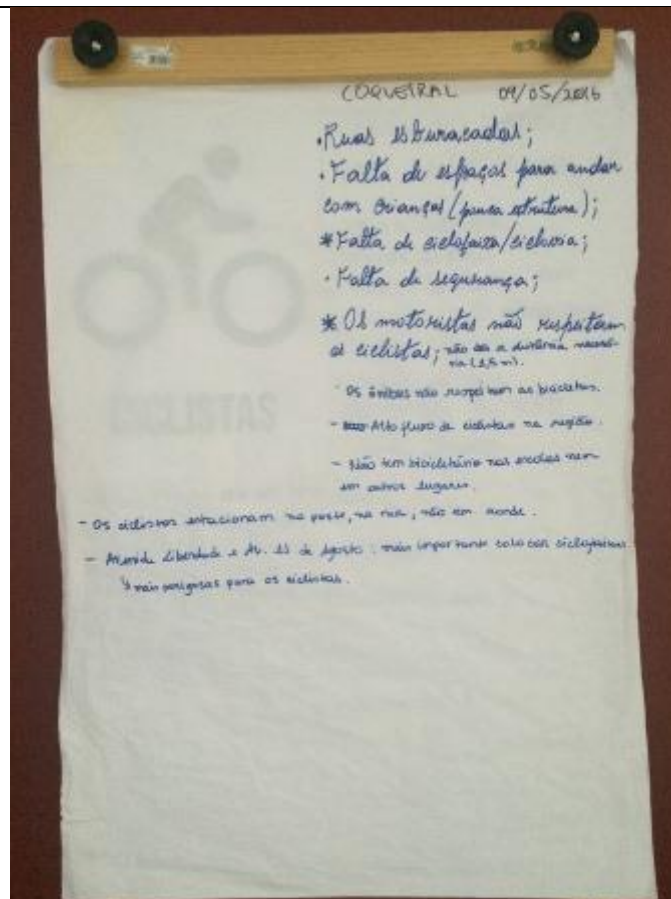 COQUEIRAL 09/05/2016
• Ruas esburacadas;
• Falta de espaços para andar
com crianças (pouca estrutura);
* Falta de ciclofaixa/ciclovia;
• Falta de segurança;
* Os motoristas não respeitam
os ciclistas; não dá a distância necessá-
ria (1,5 m).
- Os ônibus não respeitam as bicicletas.
- Alto fluxo de ciclistas na região.
- Não tem bicicletário nas escolas nem
em outros lugares.
CICLISTAS
- Os ciclistas estacionam no poste, na rua, não tem aonde.
- Avenida Liberdade e Av. 11 de Agosto: mais importante colocar ciclofaixas
↳ mais perigosas para os ciclistas.